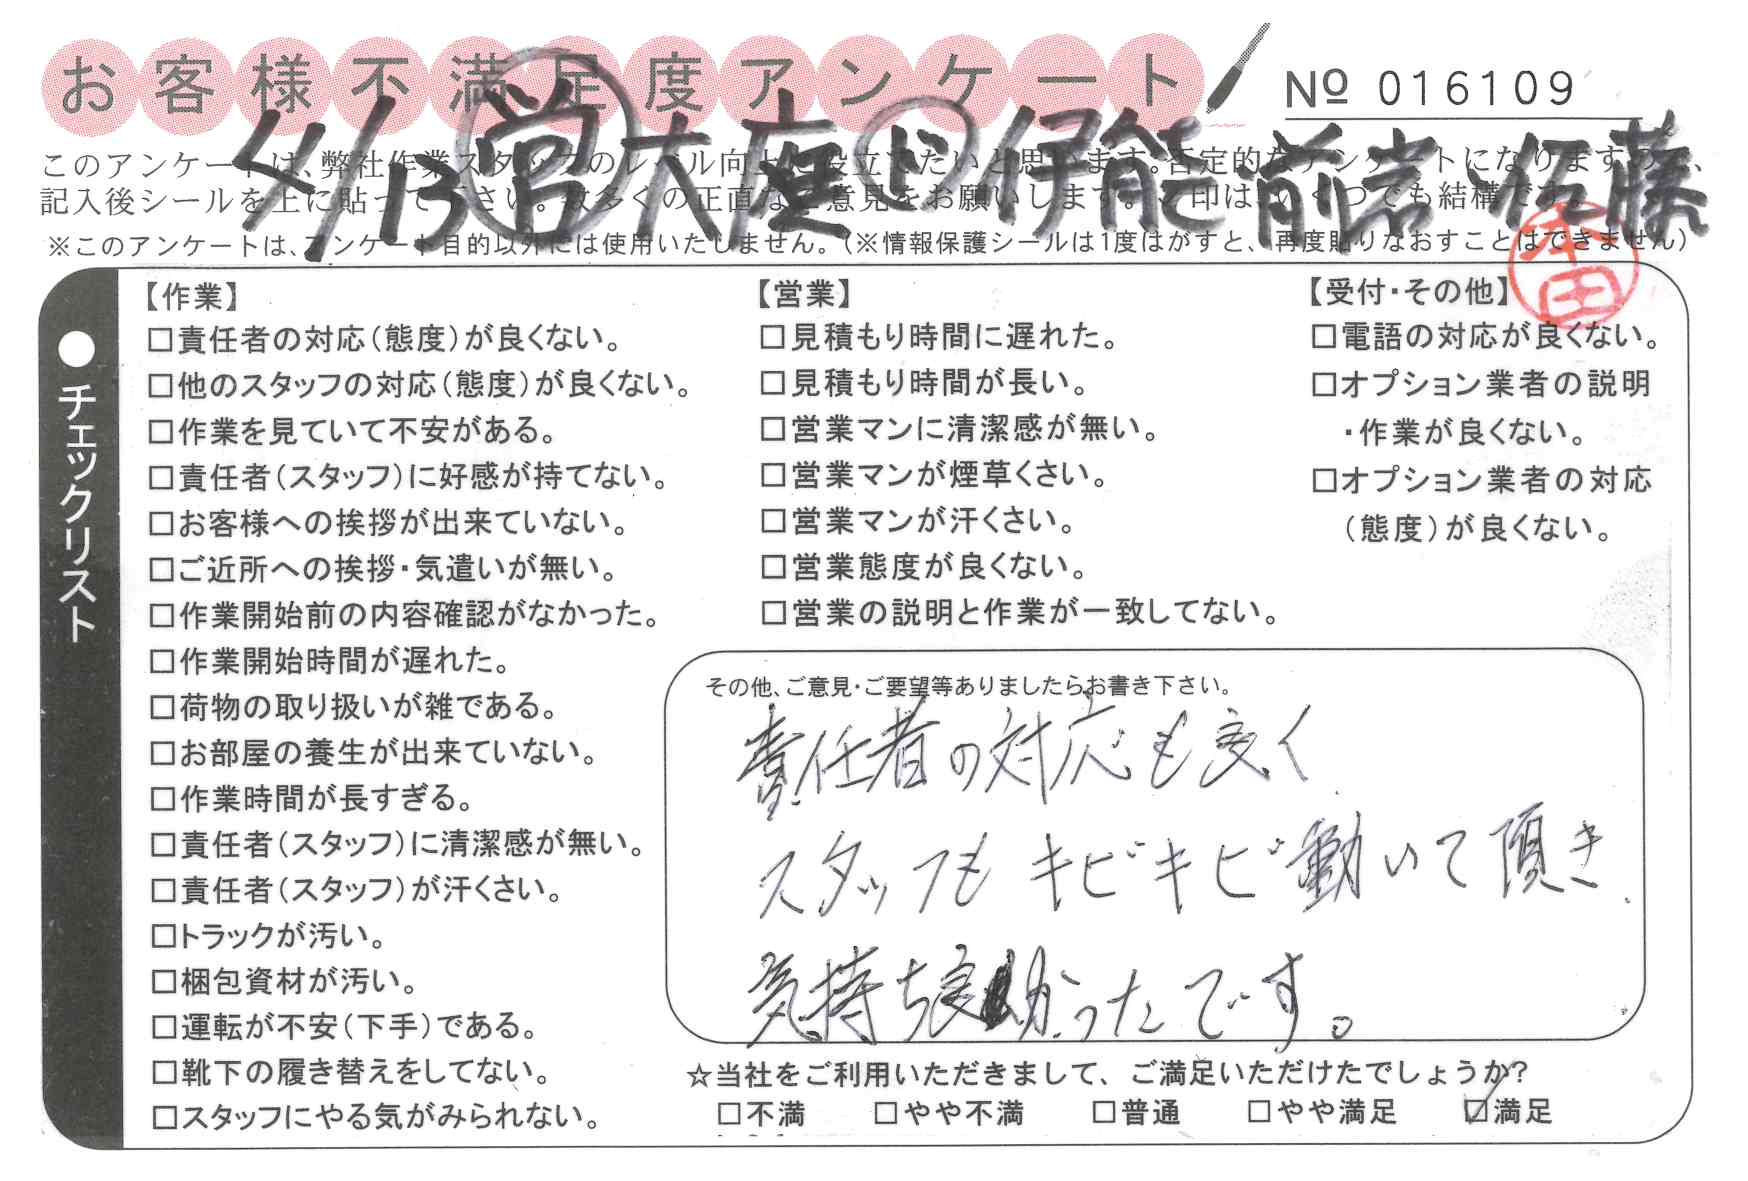 お客様不満足度アンケート
№ 016109
4/13 営 大庭 ピ 伊能 前岩 佐藤
このアンケートは、弊社作業スタッフのレベル向上に役立てたいと思います。否定的なアンケートになりますので、
記入後シールを上に貼って下さい。数多くの正直なご意見をお願いします。レ印は、いくつでも結構です。
※このアンケートは、アンケート目的以外には使用いたしません。（※情報保護シールは1度はがすと、再度貼りなおすことはできません）
本田
●チェックリスト
【作業】
□責任者の対応（態度）が良くない。
□他のスタッフの対応（態度）が良くない。
□作業を見ていて不安がある。
□責任者（スタッフ）に好感が持てない。
□お客様への挨拶が出来ていない。
□ご近所への挨拶・気遣いが無い。
□作業開始前の内容確認がなかった。
□作業開始時間が遅れた。
□荷物の取り扱いが雑である。
□お部屋の養生が出来ていない。
□作業時間が長すぎる。
□責任者（スタッフ）に清潔感が無い。
□責任者（スタッフ）が汗くさい。
□トラックが汚い。
□梱包資材が汚い。
□運転が不安（下手）である。
□靴下の履き替えをしてない。
□スタッフにやる気がみられない。
【営業】
□見積もり時間に遅れた。
□見積もり時間が長い。
□営業マンに清潔感が無い。
□営業マンが煙草くさい。
□営業マンが汗くさい。
□営業態度が良くない。
□営業の説明と作業が一致してない。
【受付・その他】
□電語の対応が良くない。
□オプション業者の説明
・作業が良くない。
□オプション業者の対応
（態度）が良くない。
その他、ご意見・ご要望等ありましたらお書き下さい。
責任者の対応も良く
スタッフもキビキビ動いて頂き
気持ち良助かったです。
☆当社をご利用いただきまして、ご満足いただけたでしょうか?
□不満 □やや不満 □普通 □やや満足 ☑満足